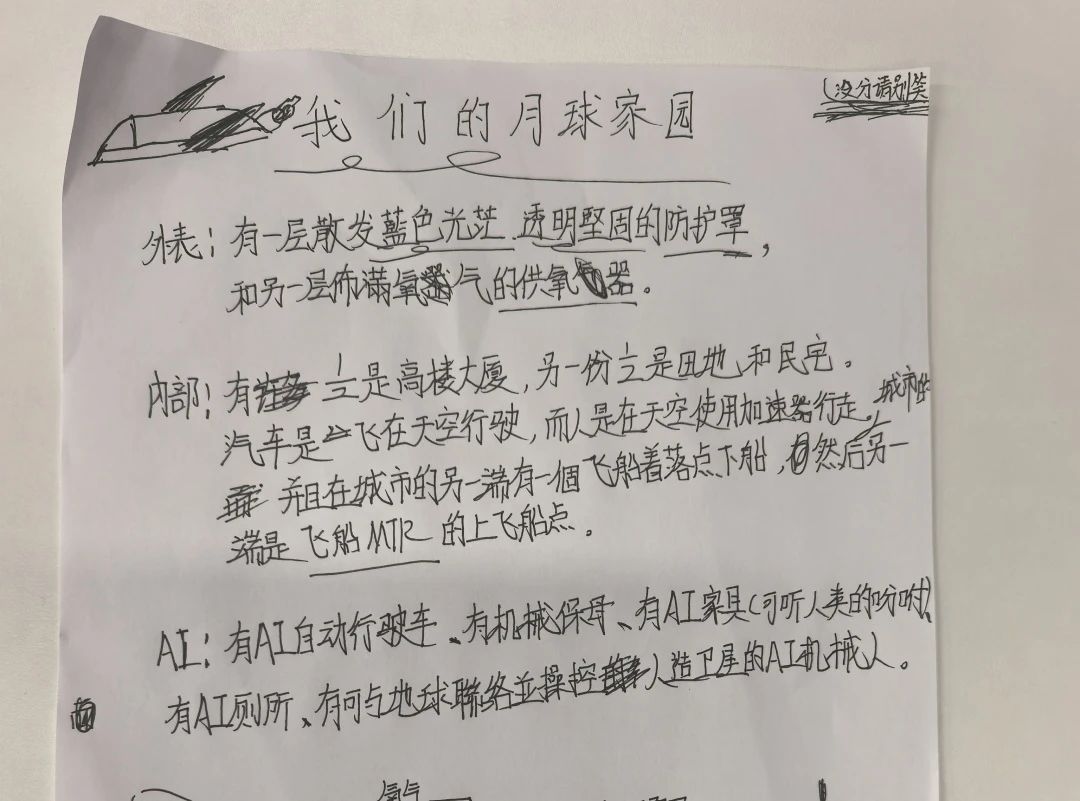 我们的月球家园
(没分请别笑
外表：有一层散发藍色光茫 透明坚固的防护罩，
和另一层佈满氧气的供氧器。
内部：有½是高楼大厦，另一份½是田地和民宅。
汽车是飞在天空行驶，而人是在天空使用加速器行走。城市的
并且在城市的另一端有一個飞船着落点下船，然后另一
端是飞船MTR的上飞船点。
AI：有AI自动行驶车、有机械保母、有AI家具(可听人类的吩咐)、
有AI厕所、有可与地球聯络並操控人造卫星的AI机械人。
氧气